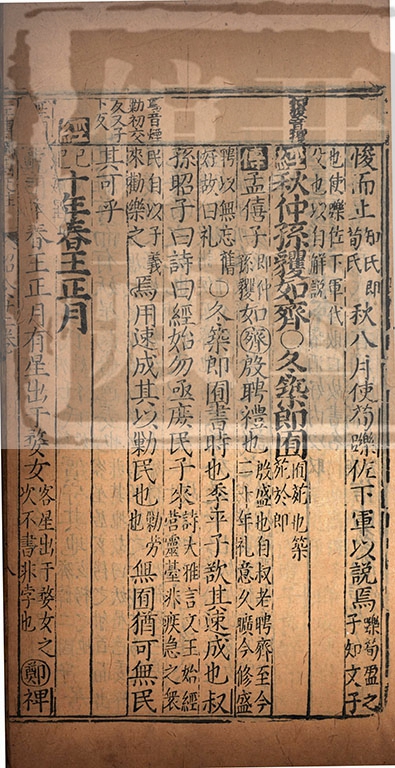 悛而止知氏即荀氏秋八月使荀躒佐下軍以說焉躒荀盈之子知文子
也使躒佐下軍代父也以自解說
經秋仲孫貜如齊○冬築郎囿囿苑也築苑於郎
傳孟僖子即仲孫貜如齊殷聘禮也殷盛也自叔老聘齊至今二十年礼意久曠今修盛
聘以無忘舊好故曰礼○冬築郎囿書時也季平子欲其速成也叔
孫昭子曰詩曰經始勿亟庶民子來詩大雅言文王始經營靈臺非疾急之衆
焉音煙
民自以子義來勸樂之焉用速成其以勦民也勦勞也無囿猶可無民
勦初交
反又子
其可乎
經十年春王正月
春王正月有星出于婺女客星出于婺女之次不書非孛也鄭裨